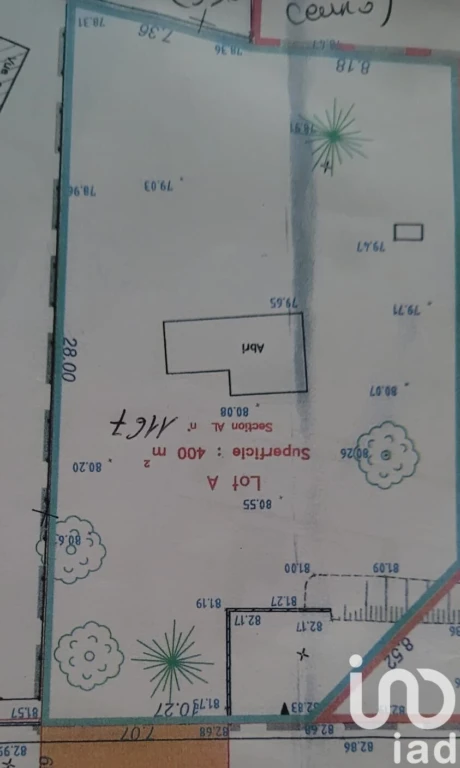 78.31
7.36
78.36
78.47
8.18
78.91
79.03
78.96
79.47
79.65
79.71
Abri
28.00
80.07
80.08
1167
Section AL n°
Superficie : 400 m²
80.26
80.20
Lot A
80.55
81.00
81.09
81.27
81.19
82.17
82.17
8.52
81.79
10.27
82.83
81.57
7.07
82.68
82.68
82.86
iad